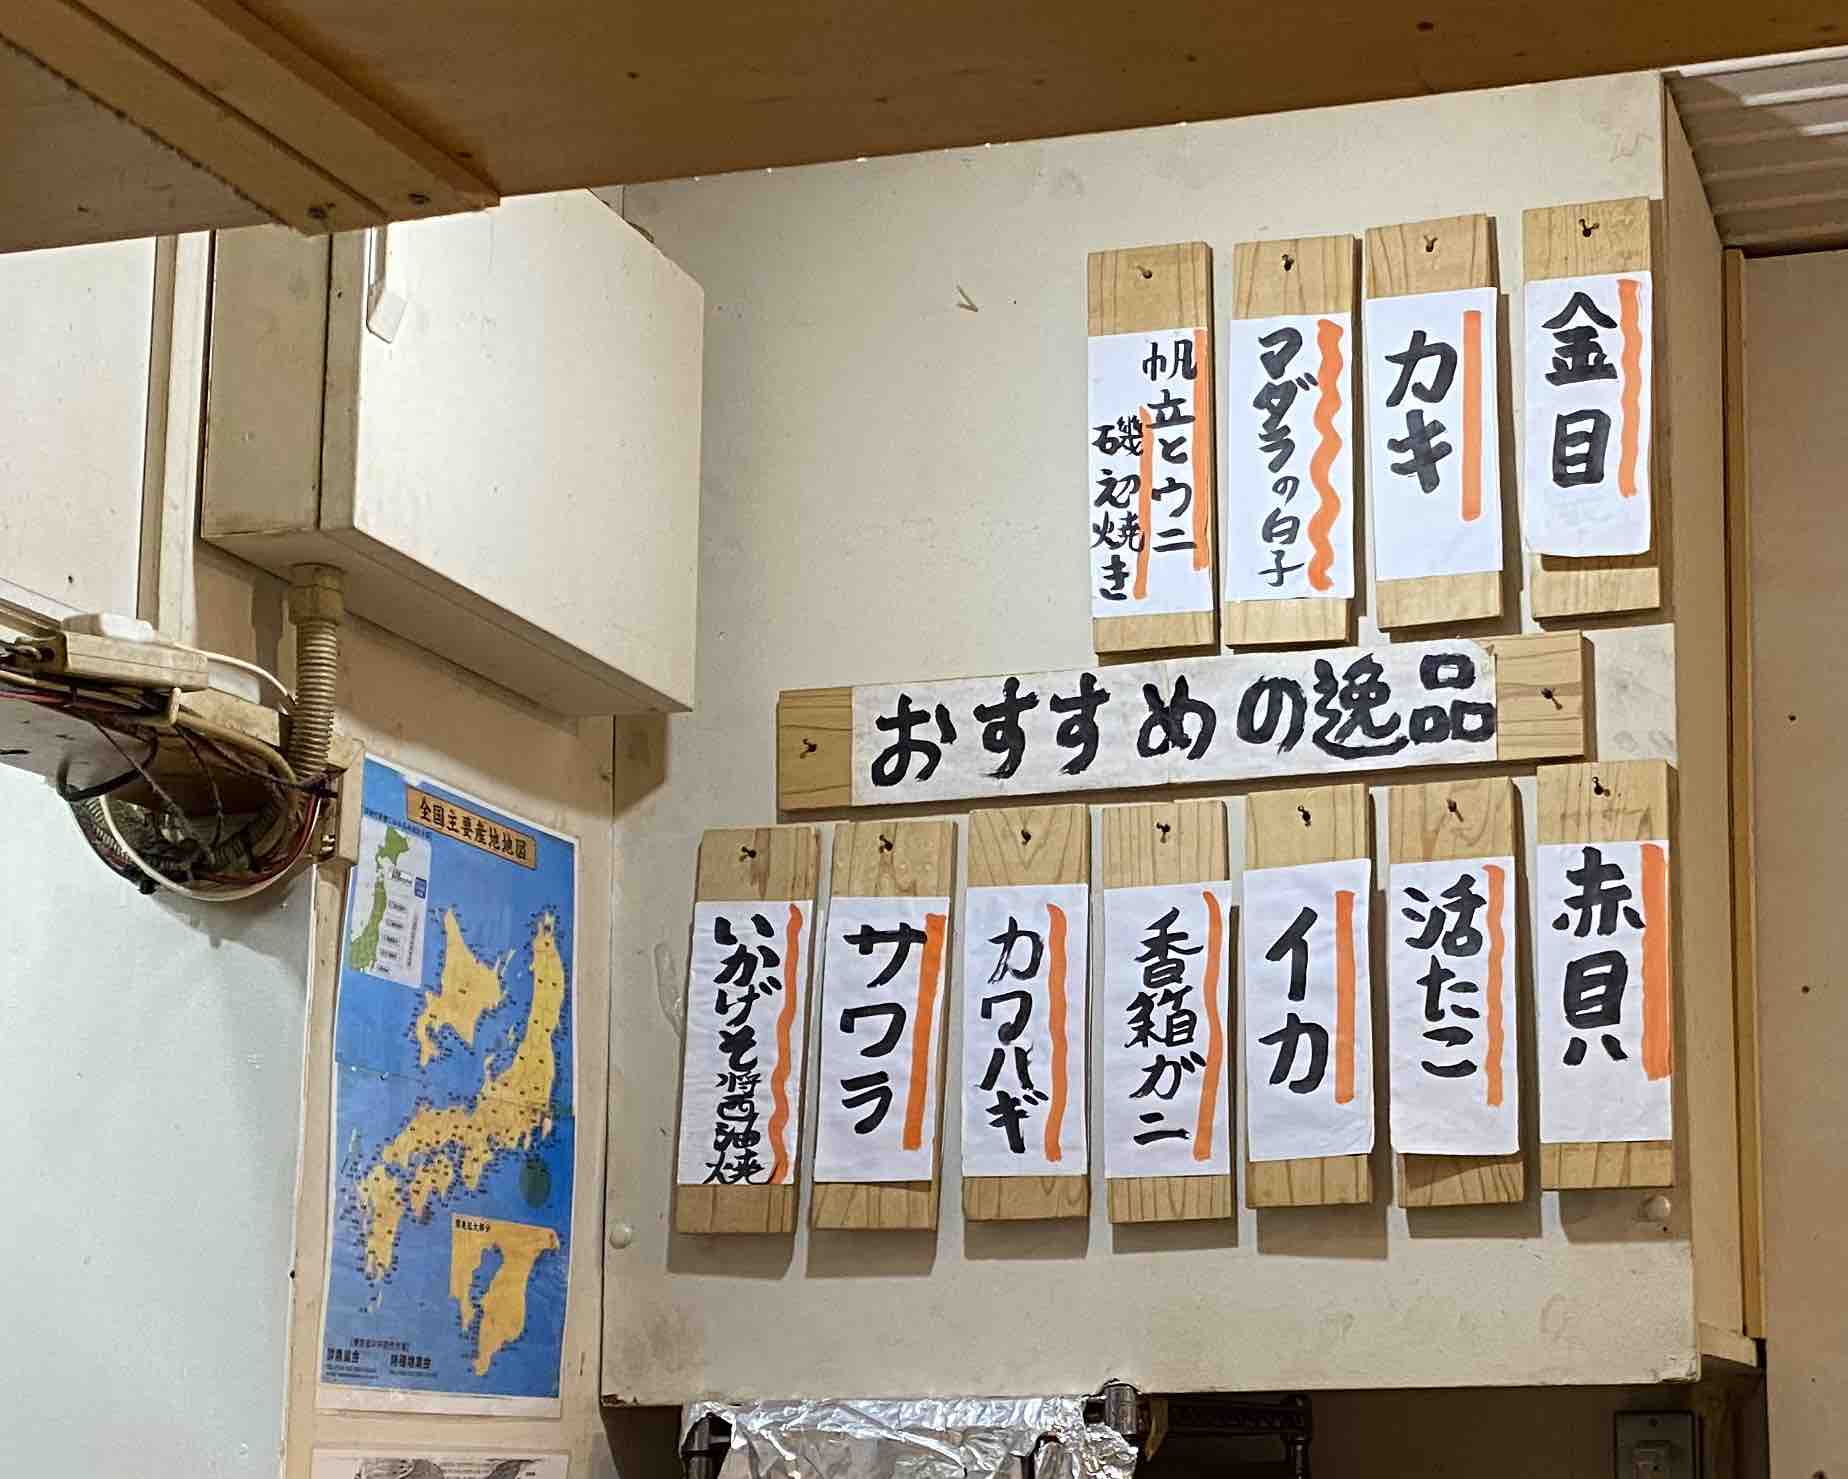 金目
カキ
マダラの白子
帆立とウニ
磯初焼き
おすすめの逸品
赤貝
活たこ
イカ
香箱ガニ
カワハギ
サワラ
いかげそ将西油焼
全国主要産地地図